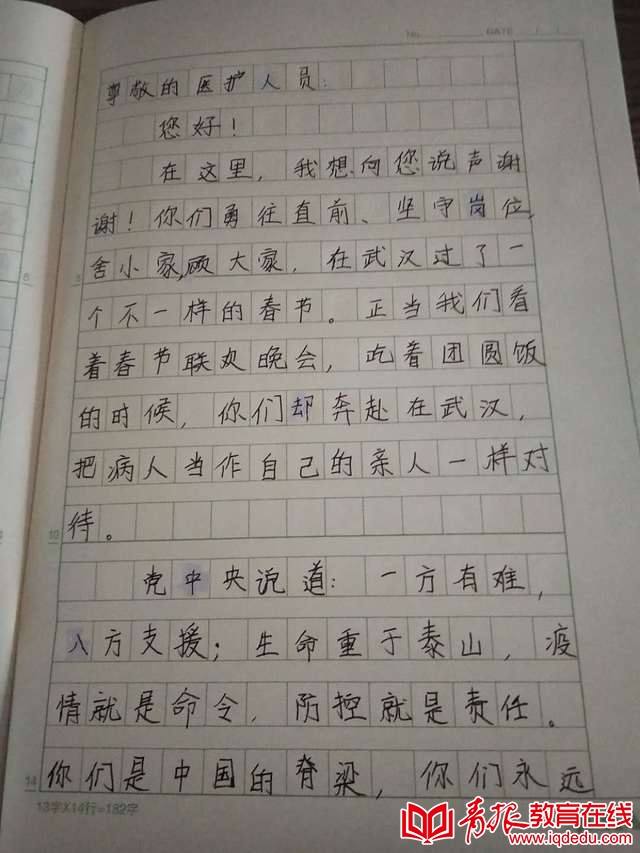 No. DATE / /
尊敬的医护人员：
您好！
在这里，我想向您说声谢
谢！你们勇往直前、坚守岗位，
舍小家，顾大家，在武汉过了一
个不一样的春节。正当我们看
着春节联欢晚会，吃着团圆饭
的时候，你们却奔赴在武汉，
把病人当作自己的亲人一样对
待。
党中央说道：一方有难，
八方支援；生命重于泰山，疫
情就是命令，防控就是责任。
你们是中国的脊梁，你们永远
5
10
14
13字X14行=182字
青报教育在线
www.iqdedu.com